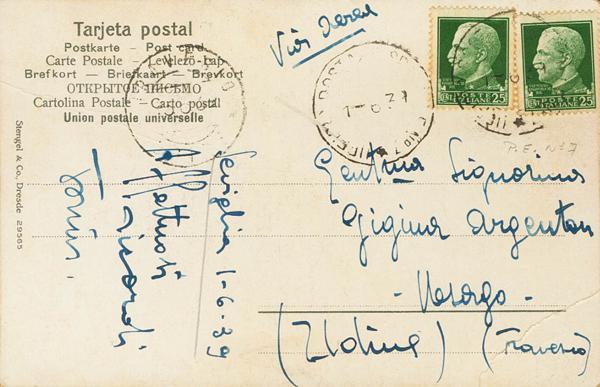 Tarjeta postal
Postkarte - Post card.
Carte Postale - Levelező-Lap
Brefkort - Briefkaart - Brevkort
ОТКРЫТОЕ ПИСЬМО
Cartolina Postale - Carto postal
Union postale universelle
Stengel & Co., Dresde 29565
Via Aerea
CENT 25
POSTE ITALIANE
CENT 25
POSTE ITALIANE
1-6 39
P.E. No 7
Siviglia 1-6-39
Affettuosi
ricordi
Gent.ma Signorina
Gigina Argenton
(Udine) (Travesio)